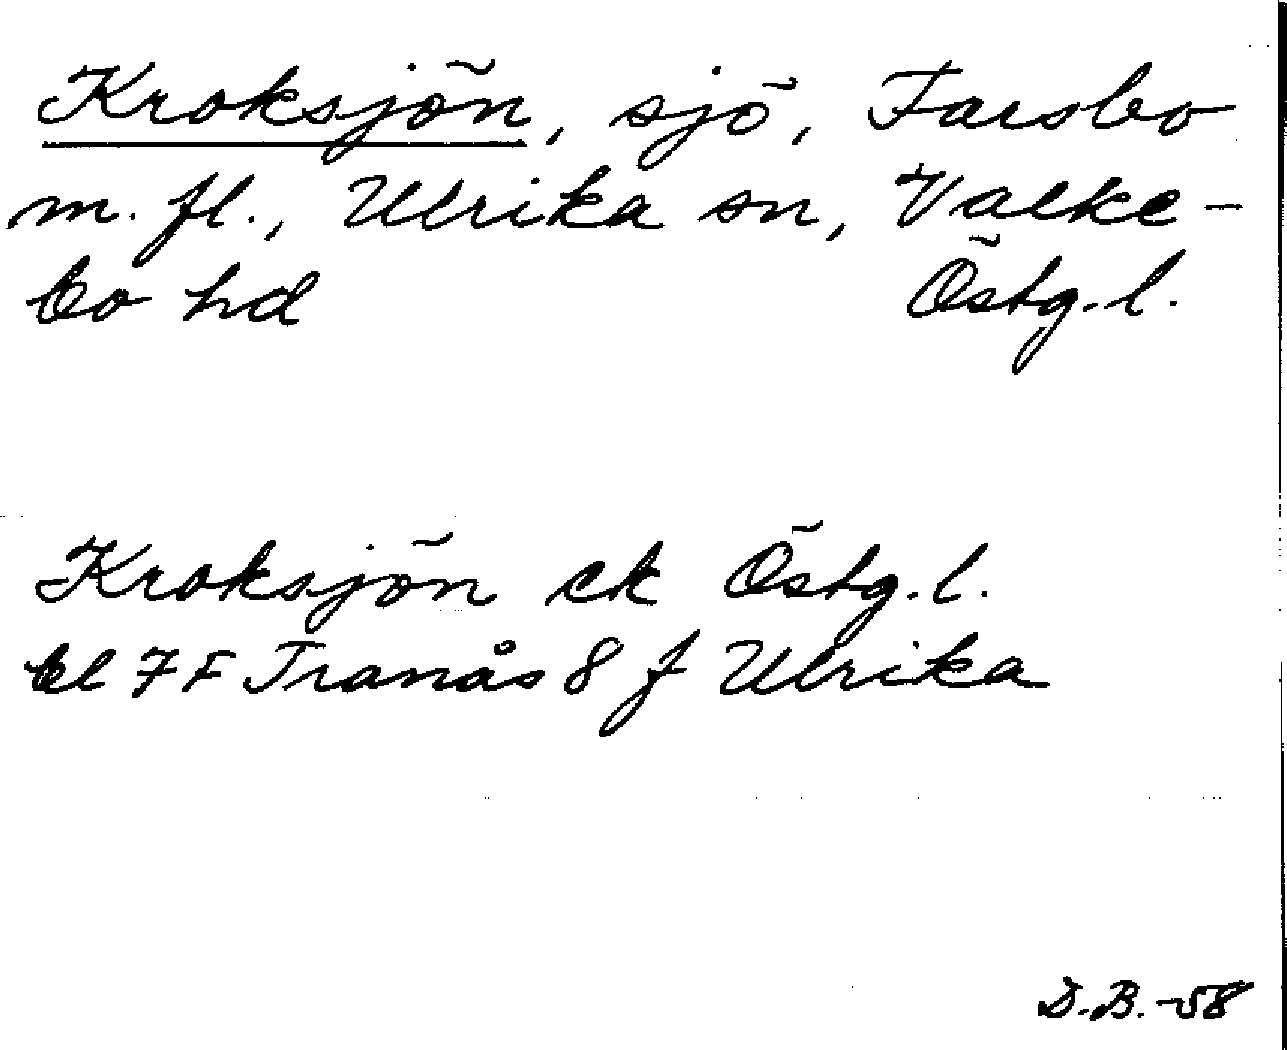 Kroksjön, sjö, Farsbo
m. fl., Ulrika sn, Valke-
bo hd Östg. l.
Kroksjön ek Östg. l.
bl 7 F Tranås 8 f Ulrika
D.B. -58